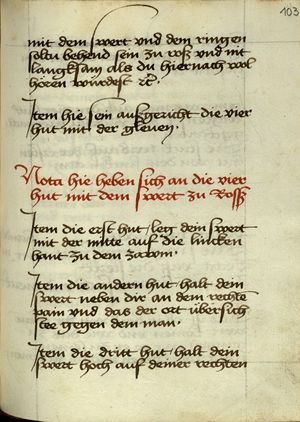 103
mit dem swert vnd dem ringen
soltu behend sein zu roß vnd nit
langksam als du hiernach wol
horen würdest etc.
Item hie sein aufgericht die vier
hut mit der gleuen.
Nota hie heben sich an die vier
hut mit dem swert zu Roß
Item die erst hut / leg dein swert
mit der mitte auf die lincken
hant zu dem zawm.
Item die andern hut / halt dein
swert neben dir an dem rechte
pain vnd das der ort übersich
stee gegen dem man.
Item die dritt hut / halt dein
swert hoch auf deiner rechten